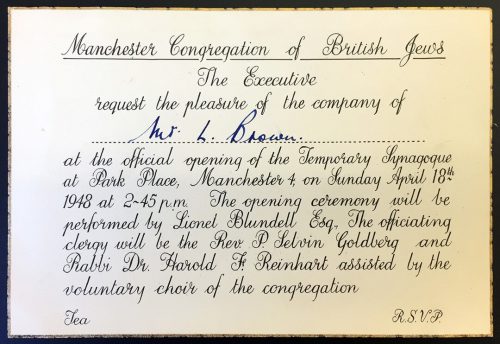 Manchester Congregation of British Jews
The Executive
request the pleasure of the company of
Mr. L. Brown.
at the official opening of the Temporary Synagogue
at Park Place, Manchester 4, on Sunday April 18th
1948 at 2-45 p.m. The opening ceremony will be
performed by Lionel Blundell Esq., The officiating
clergy will be the Rev. P. Selvin Goldberg and
Rabbi Dr. Harold F. Reinhart assisted by the
voluntary choir of the congregation
Tea R.S.V.P.